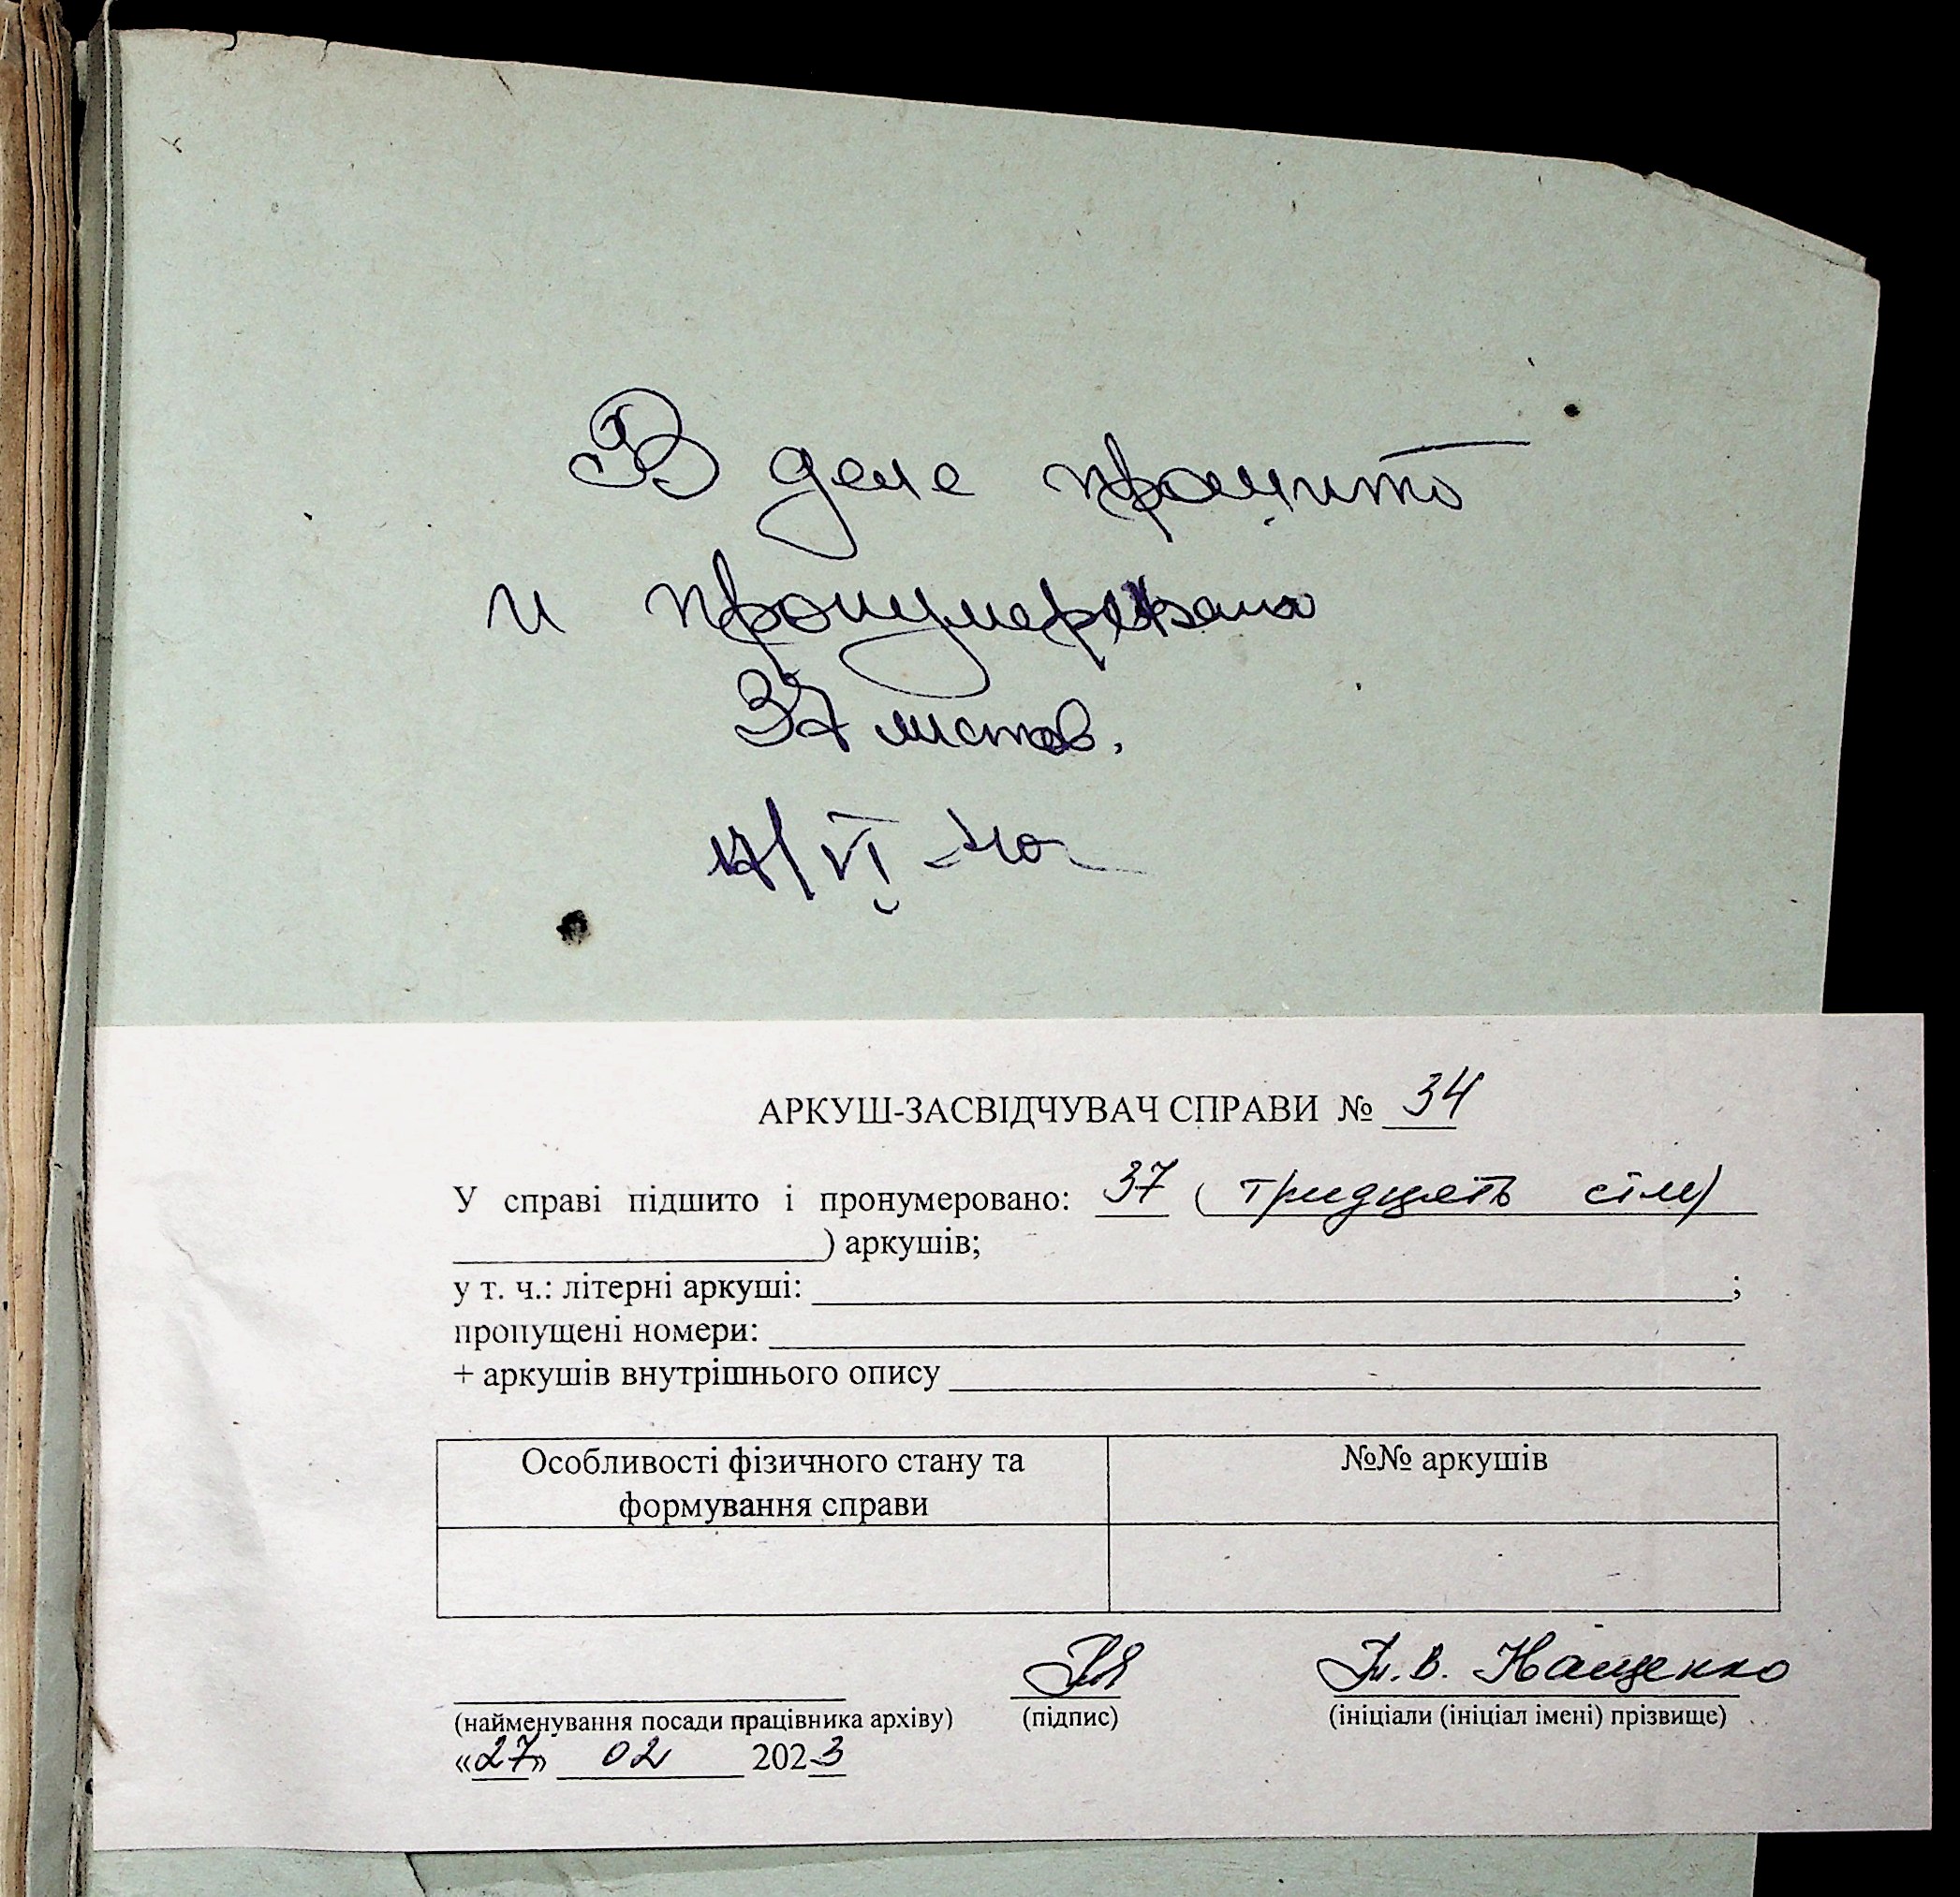 В деле прошито
и пронумеровано
37 листов.
17/VI
АРКУШ-ЗАСВІДЧУВАЧ СПРАВИ № 34
У справі підшито і пронумеровано: 37 ( тридцять сім)
) аркушів;
у т. ч.: літерні аркуші: ;
пропущені номери:
+ аркушів внутрішнього опису
Особливості фізичного стану та
формування справи
№№ аркушів
В. Нащенко
(найменування посади працівника архіву) (підпис) (ініціали (ініціал імені) прізвище)
«27» 02 2023